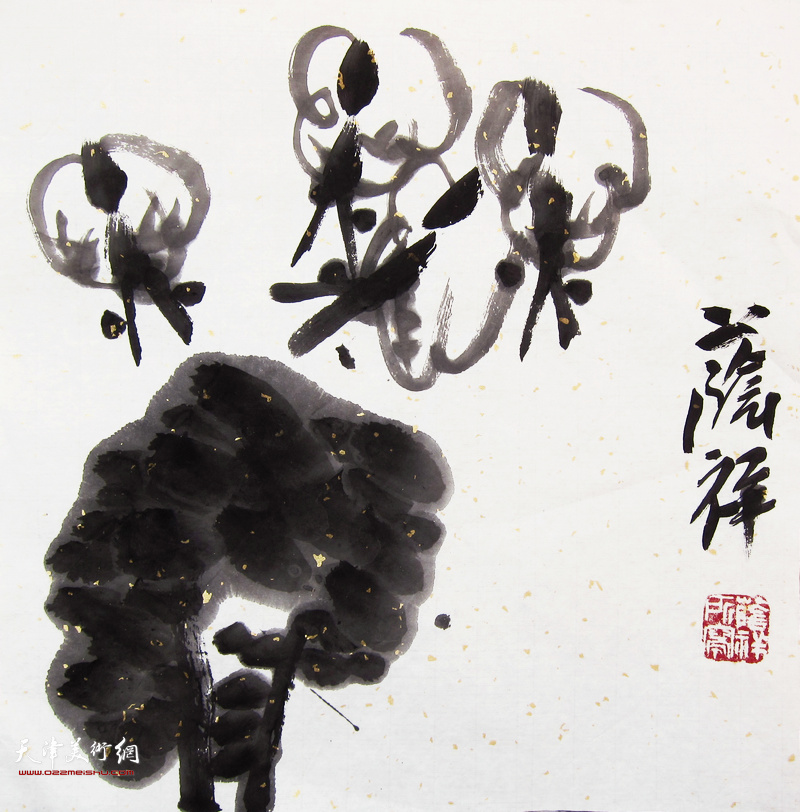 蔭祥
天津美術網
www.022meishu.com